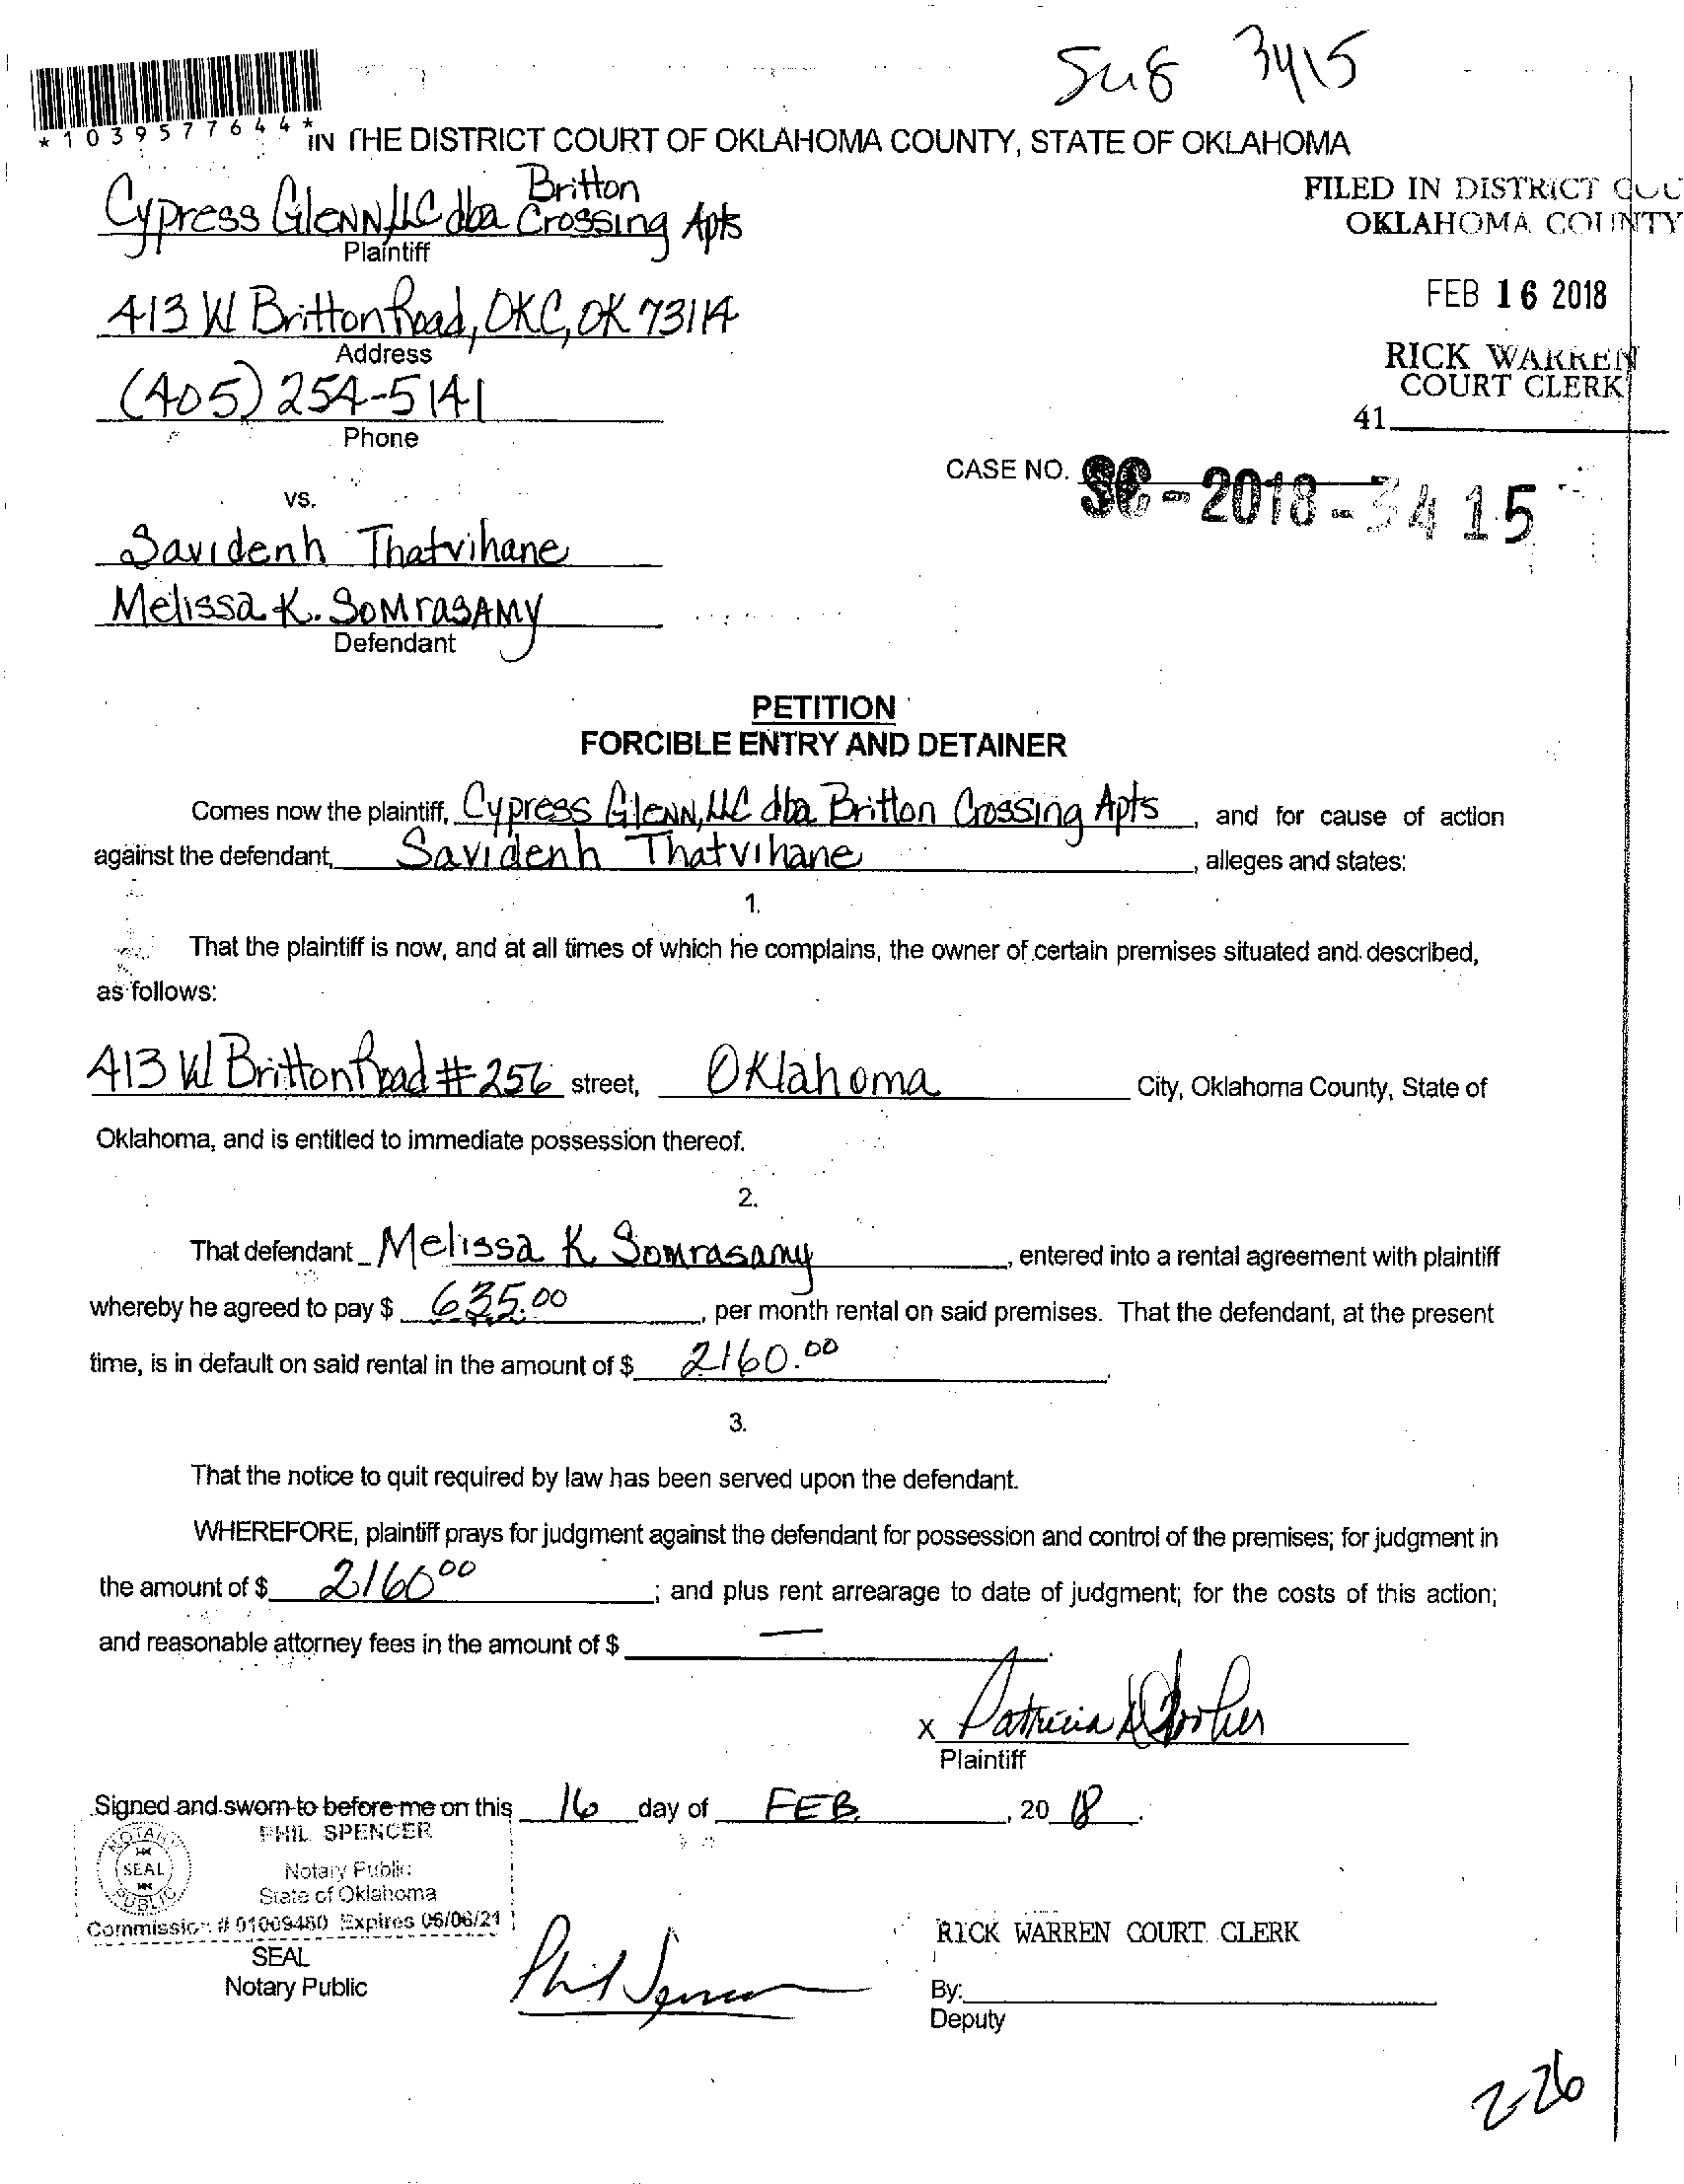 Su8 3415
*1039577644*
IN THE DISTRICT COURT OF OKLAHOMA COUNTY, STATE OF OKLAHOMA
Cypress Glenn, LLC dba Britton Crossing Apts
Plaintiff
413 W Britton Road, OKC, OK 73114
Address
(405) 254-5141
Phone
FILED IN DISTRICT
OKLAHOMA COUNTY
FEB 16 2018
RICK WARREN
COURT CLERK
41
CASE NO. SC-2018-3415
vs.
Savidenh Thatvihane
Melissa K. Somrasamy
Defendant
PETITION
FORCIBLE ENTRY AND DETAINER
Comes now the plaintiff, Cypress Glenn, LLC dba Britton Crossing Apts, and for cause of action
against the defendant, Savidenh Thatvihane, alleges and states:
1.
That the plaintiff is now, and at all times of which he complains, the owner of certain premises situated and described,
as follows:
413 W Britton Road # 256 street, Oklahoma City, Oklahoma County, State of
Oklahoma, and is entitled to immediate possession thereof.
2.
That defendant Melissa K Somrasamy, entered into a rental agreement with plaintiff
whereby he agreed to pay $ 635.00, per month rental on said premises. That the defendant, at the present
time, is in default on said rental in the amount of $ 2160.00.
3.
That the notice to quit required by law has been served upon the defendant.
WHEREFORE, plaintiff prays for judgment against the defendant for possession and control of the premises; for judgment in
the amount of $ 2160 00; and plus rent arrearage to date of judgment; for the costs of this action;
and reasonable attorney fees in the amount of $ —.
x Patricia
Plaintiff
Signed and sworn to before me on this 16 day of FEB, 20 18.
NOTARY SEAL PUBLIC
PHIL SPENCER
Notary Public
State of Oklahoma
Commission # 01009480 Expires 06/06/21
SEAL
Notary Public
Phil Spencer
RICK WARREN COURT CLERK
By:
Deputy
226